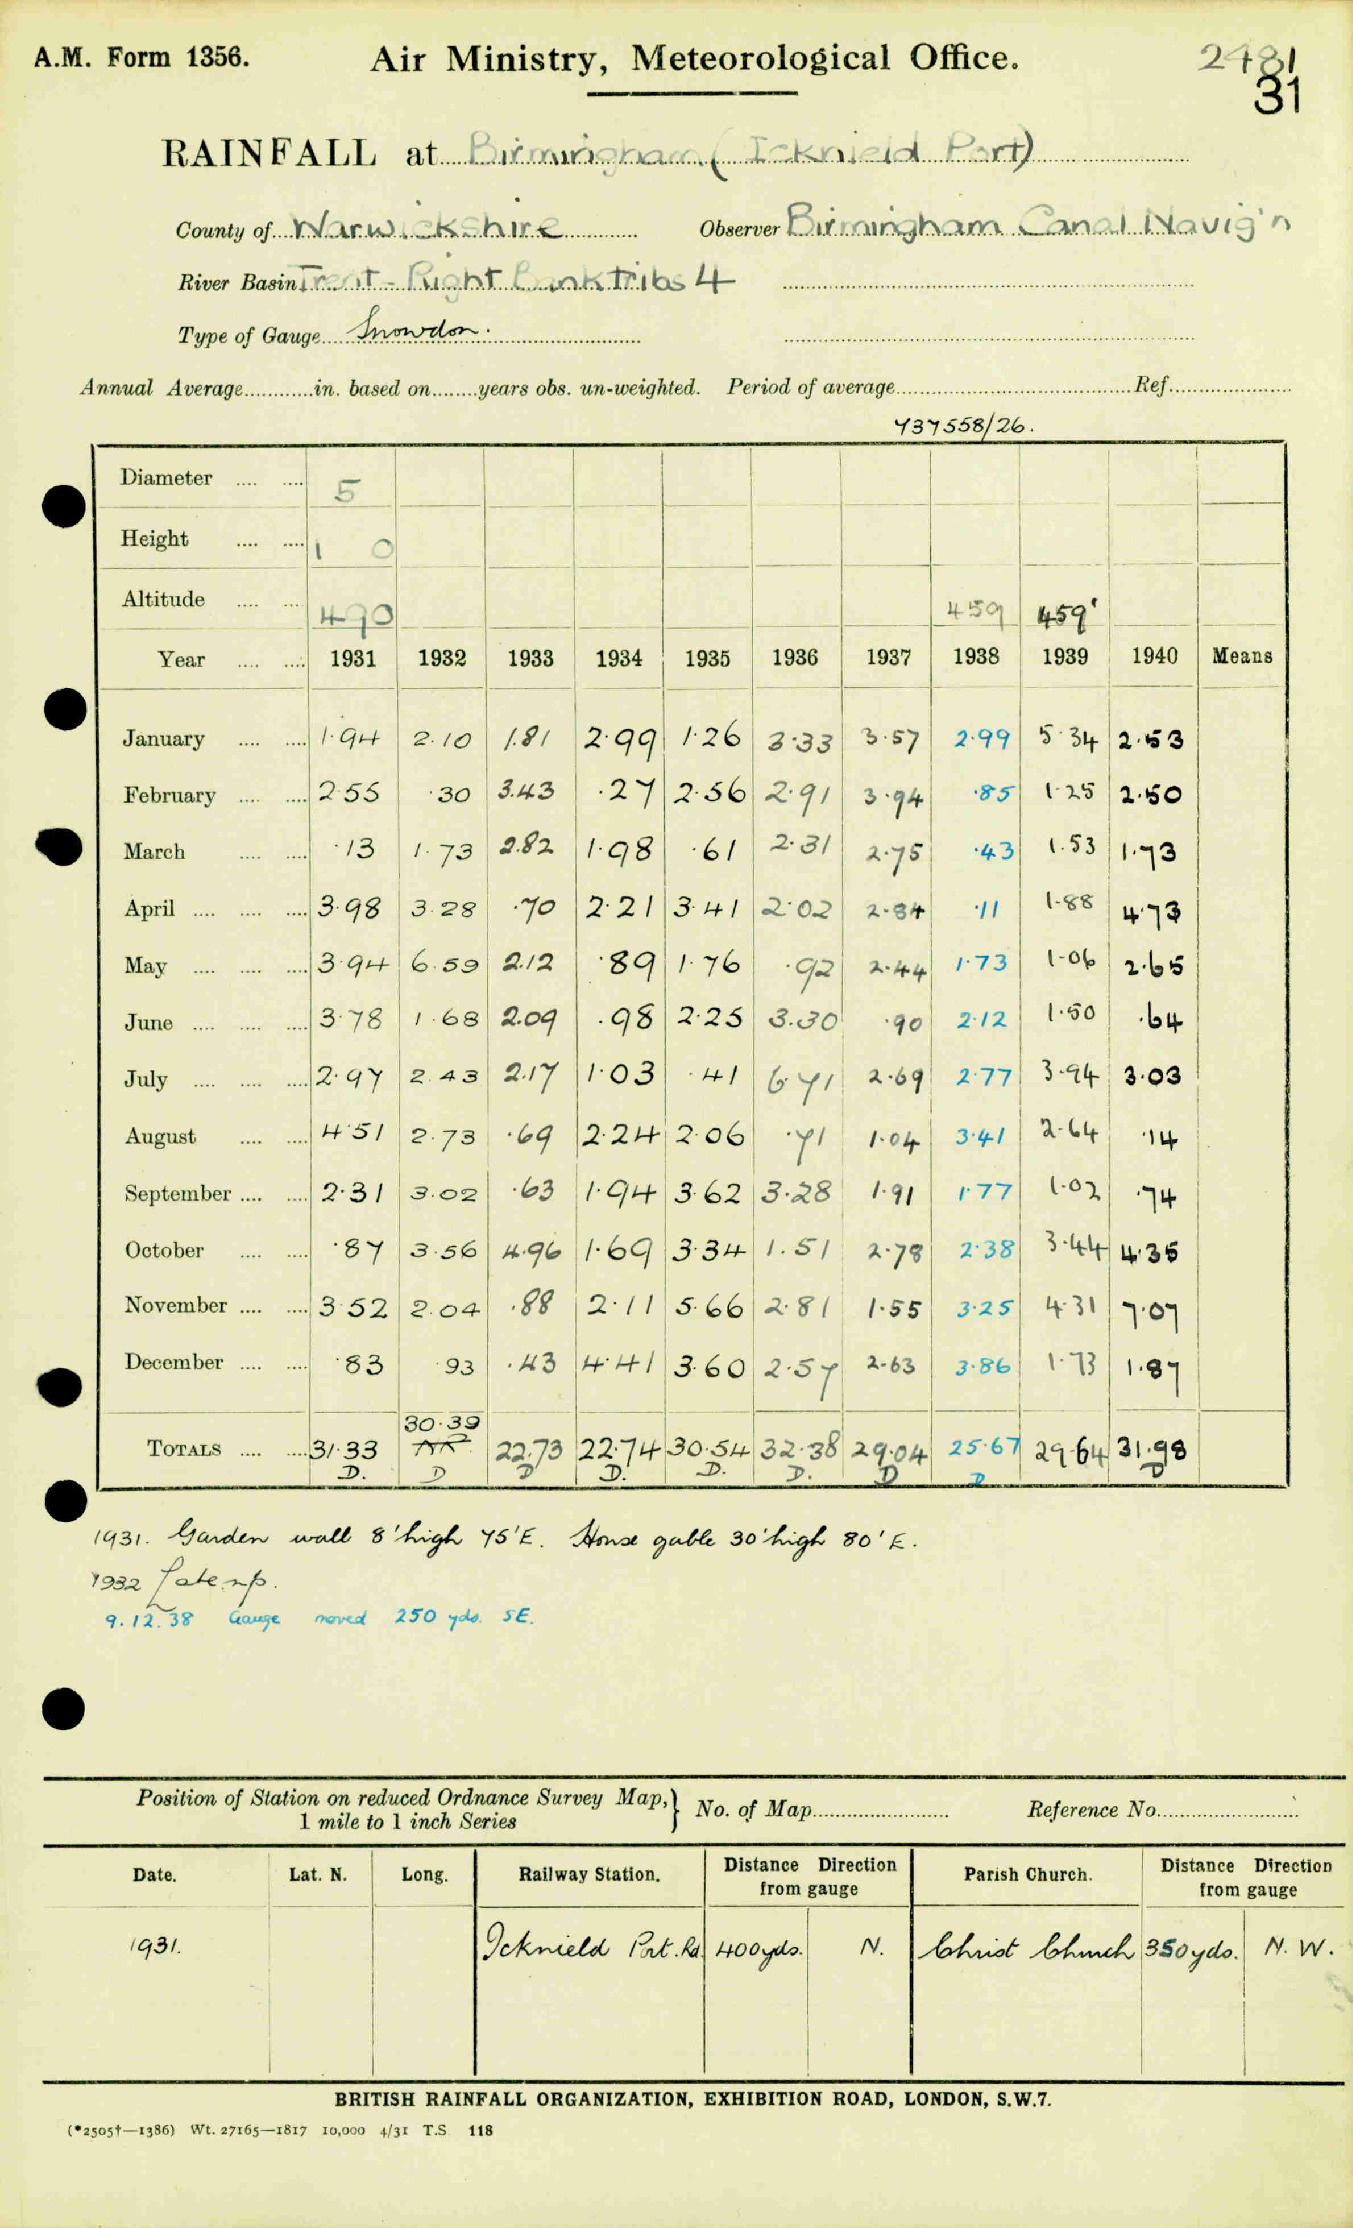 A.M. Form 1356.
Air Ministry, Meteorological Office.
2481
31
RAINFALL at Birmingham (Icknield Port)
County of Warwickshire Observer Birmingham Canal Navig'n
River Basin Trent - Right Bank Tribs 4
Type of Gauge Snowdon.
Annual Average in. based on years obs. un-weighted. Period of average Ref.
737558/26.
Diameter 5
Height 1 0
Altitude 490 459 459'
Year 1931 1932 1933 1934 1935 1936 1937 1938 1939 1940 Means
January 1.94 2.10 1.81 2.99 1.26 3.33 3.57 2.99 5.34 2.53
February 2.55 .30 3.43 .27 2.56 2.91 3.94 .85 1.25 2.50
March .13 1.73 2.82 1.98 .61 2.31 2.75 .43 1.53 1.73
April 3.98 3.28 .70 2.21 3.41 2.02 2.84 .11 1.88 4.73
May 3.94 6.59 2.12 .89 1.76 .92 2.44 1.73 1.06 2.65
June 3.78 1.68 2.09 .98 2.25 3.30 .90 2.12 1.50 .64
July 2.97 2.43 2.17 1.03 .41 6.71 2.69 2.77 3.94 3.03
August 4.51 2.73 .69 2.24 2.06 .71 1.04 3.41 2.64 .14
September 2.31 3.02 .63 1.94 3.62 3.28 1.91 1.77 1.02 .74
October .87 3.56 4.96 1.69 3.34 1.51 2.78 2.38 3.44 4.35
November 3.52 2.04 .88 2.11 5.66 2.81 1.55 3.25 4.31 7.07
December .83 .93 .43 4.41 3.60 2.57 2.63 3.86 1.73 1.87
TOTALS 31.33 30.39 22.73 22.74 30.54 32.38 29.04 25.67 29.64 31.98
D. D D D. D. D. D D D
1931. Garden wall 8' high 75' E. House gable 30' high 80' E.
1932 Late
9.12.38 Gauge moved 250 yds. SE.
Position of Station on reduced Ordnance Survey Map,} No. of Map Reference No.
1 mile to 1 inch Series
Date. Lat. N. Long. Railway Station. Distance Direction from gauge Parish Church. Distance Direction from gauge
1931. Icknield Port. Rd. 400 yds. N. Christ Church 350 yds. N.W.
BRITISH RAINFALL ORGANIZATION, EXHIBITION ROAD, LONDON, S.W.7.
(*2505†—1386) Wt. 27165—1817 10,000 4/31 T.S. 118